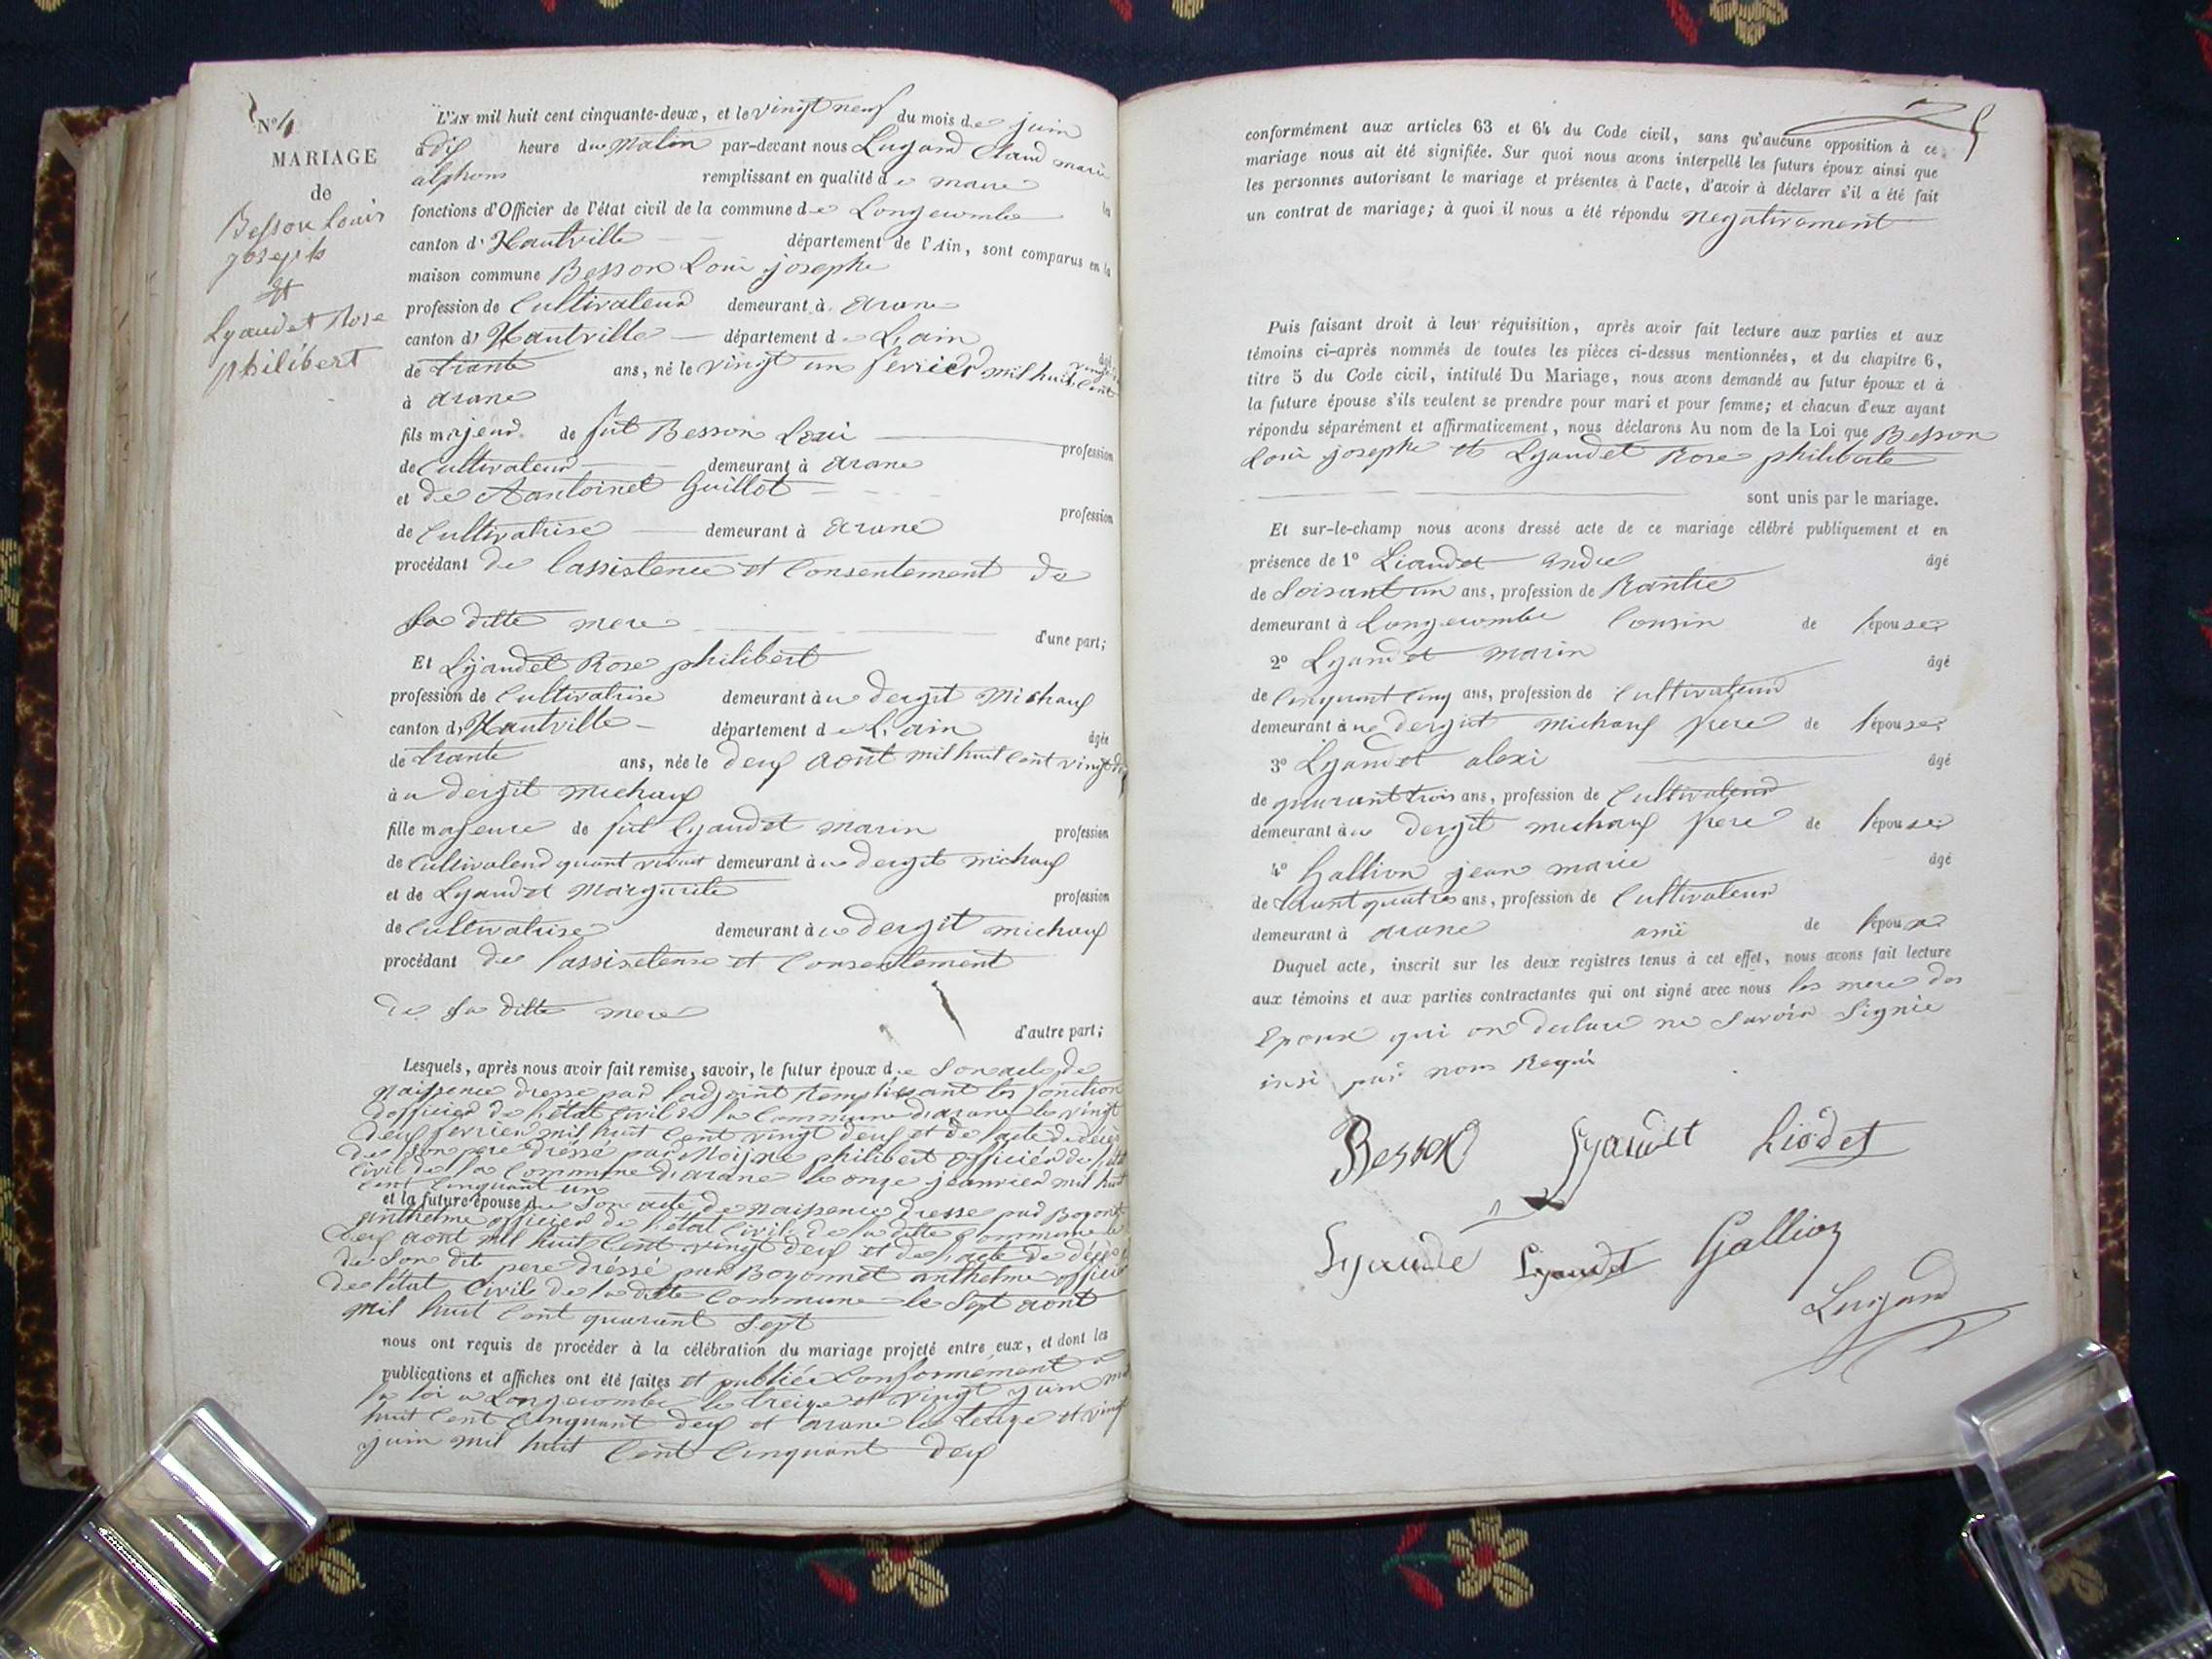 N° 4
MARIAGE
de
Besson Louis
joseph
et
Lyaudet Rose
philibert
L'AN mil huit cent cinquante-deux, et le vingt neuf du mois de juin
à dix heure du Matin par-devant nous Lugand Claud marie
alphons remplissant en qualité de maire
fonctions d'Officier de l'état civil de la commune de Longecombe
canton d' Hautville département de l'Ain, sont comparus en la
maison commune Besson Loui josephe
profession de Cultivateur demeurant à arane
canton d' Hautville département de Lain
de trante ans, né le vingt un ferrier mil huit cent
à arane
fils majeur de fut Besson Loui profession
de Cultivateur demeurant à arane
et de Aantoinet Guillot profession
de Cultivatrise demeurant à arane
procédant de lassistence et Consentement de
sa ditte mere d'une part;
Et Lyaudet Rose philibert
profession de Cultivatrise demeurant à u dergit Michaux
canton d' Hautville département de L'ain âgée
de trante ans, née le deux aout mil huit cent vingt
à u dergit michaux
fille majeure de fut Lyaudet marin profession
de Cultivateur quant vivait demeurant à u dergit michaux
et de Lyaudet Margurite profession
de Cultivatrise demeurant à u dergit michaux
procédant de lassistense et Consentement
de sa ditte mere
d'autre part;
Lesquels, après nous avoir fait remise, savoir, le futur époux de Son acte de
naissence dresse par ladjoint remplissant les fonction
dofficier de l'état civil de la Commune darane le vingt
deux ferrier mil huit cent vingt deux et de lacte de déces
de son pere dressé par Moijne philibert officier de l'état
civil de la Commune darane le onze jeanvier mil huit
cent cinquant un
et la future épouse de Son acte de naissence dresse par Boyonnet
anthelme officier de l'état civil de la ditte Commune le
deux aout mil huit cent vingt deux et de l'acte de déces
de Son dit pere dressé par Boyonnet anthelme officier
de l'état Civil de la ditte Commune le Sept aout
mil huit cent quarant Sept
nous ont requis de procéder à la célébration du mariage projeté entre eux, et dont les
publications et affiches ont été faites et publiée Conformement a
la loi a Longecombe le treize et vingt juin mil
huit cent Cinquant deux et arane le treize et vingt
juin mil huit Cent Cinquant deux
conformément aux articles 63 et 64 du Code civil, sans qu'aucune opposition à ce
mariage nous ait été signifiée. Sur quoi nous avons interpellé les futurs époux ainsi que
les personnes autorisant le mariage et présentes à l'acte, d'avoir à déclarer s'il a été fait
un contrat de mariage; à quoi il nous a été répondu negativement
Puis faisant droit à leur réquisition, après avoir fait lecture aux parties et aux
témoins ci-après nommés de toutes les pièces ci-dessus mentionnées, et du chapitre 6,
titre 5 du Code civil, intitulé Du Mariage, nous avons demandé au futur époux et à
la future épouse s'ils veulent se prendre pour mari et pour femme; et chacun d'eux ayant
répondu séparément et affirmativement, nous déclarons Au nom de la Loi que Besson
Loui josephe et Lyaudet Rose philiberte
sont unis par le mariage.
Et sur-le-champ nous avons dressé acte de ce mariage célébré publiquement et en
présence de 1° Liaudet andre âgé
de Soisant un ans, profession de Rantie
demeurant à Longecombe Cousin de l'épouse
2° Lyaudet marin âgé
de Cinquant Cinq ans, profession de Cultivateur
demeurant à u dergit michaux frere de l'épouse
3° Lyaudet alexi âgé
de quarant trois ans, profession de Cultivateur
demeurant à u dergit michaux frere de l'épouse
4° Gallion jean marie âgé
de trant quatre ans, profession de Cultivateur
demeurant à arane ami de l'époux
Duquel acte, inscrit sur les deux registres tenus à cet effet, nous avons fait lecture
aux témoins et aux parties contractantes qui ont signé avec nous les mere des
Epoux qui on declare ne Savoir Signie
insi par nom Requi
Besson Lyaudet Liodet
Lyaude Lyaudet Gallion
Lugand